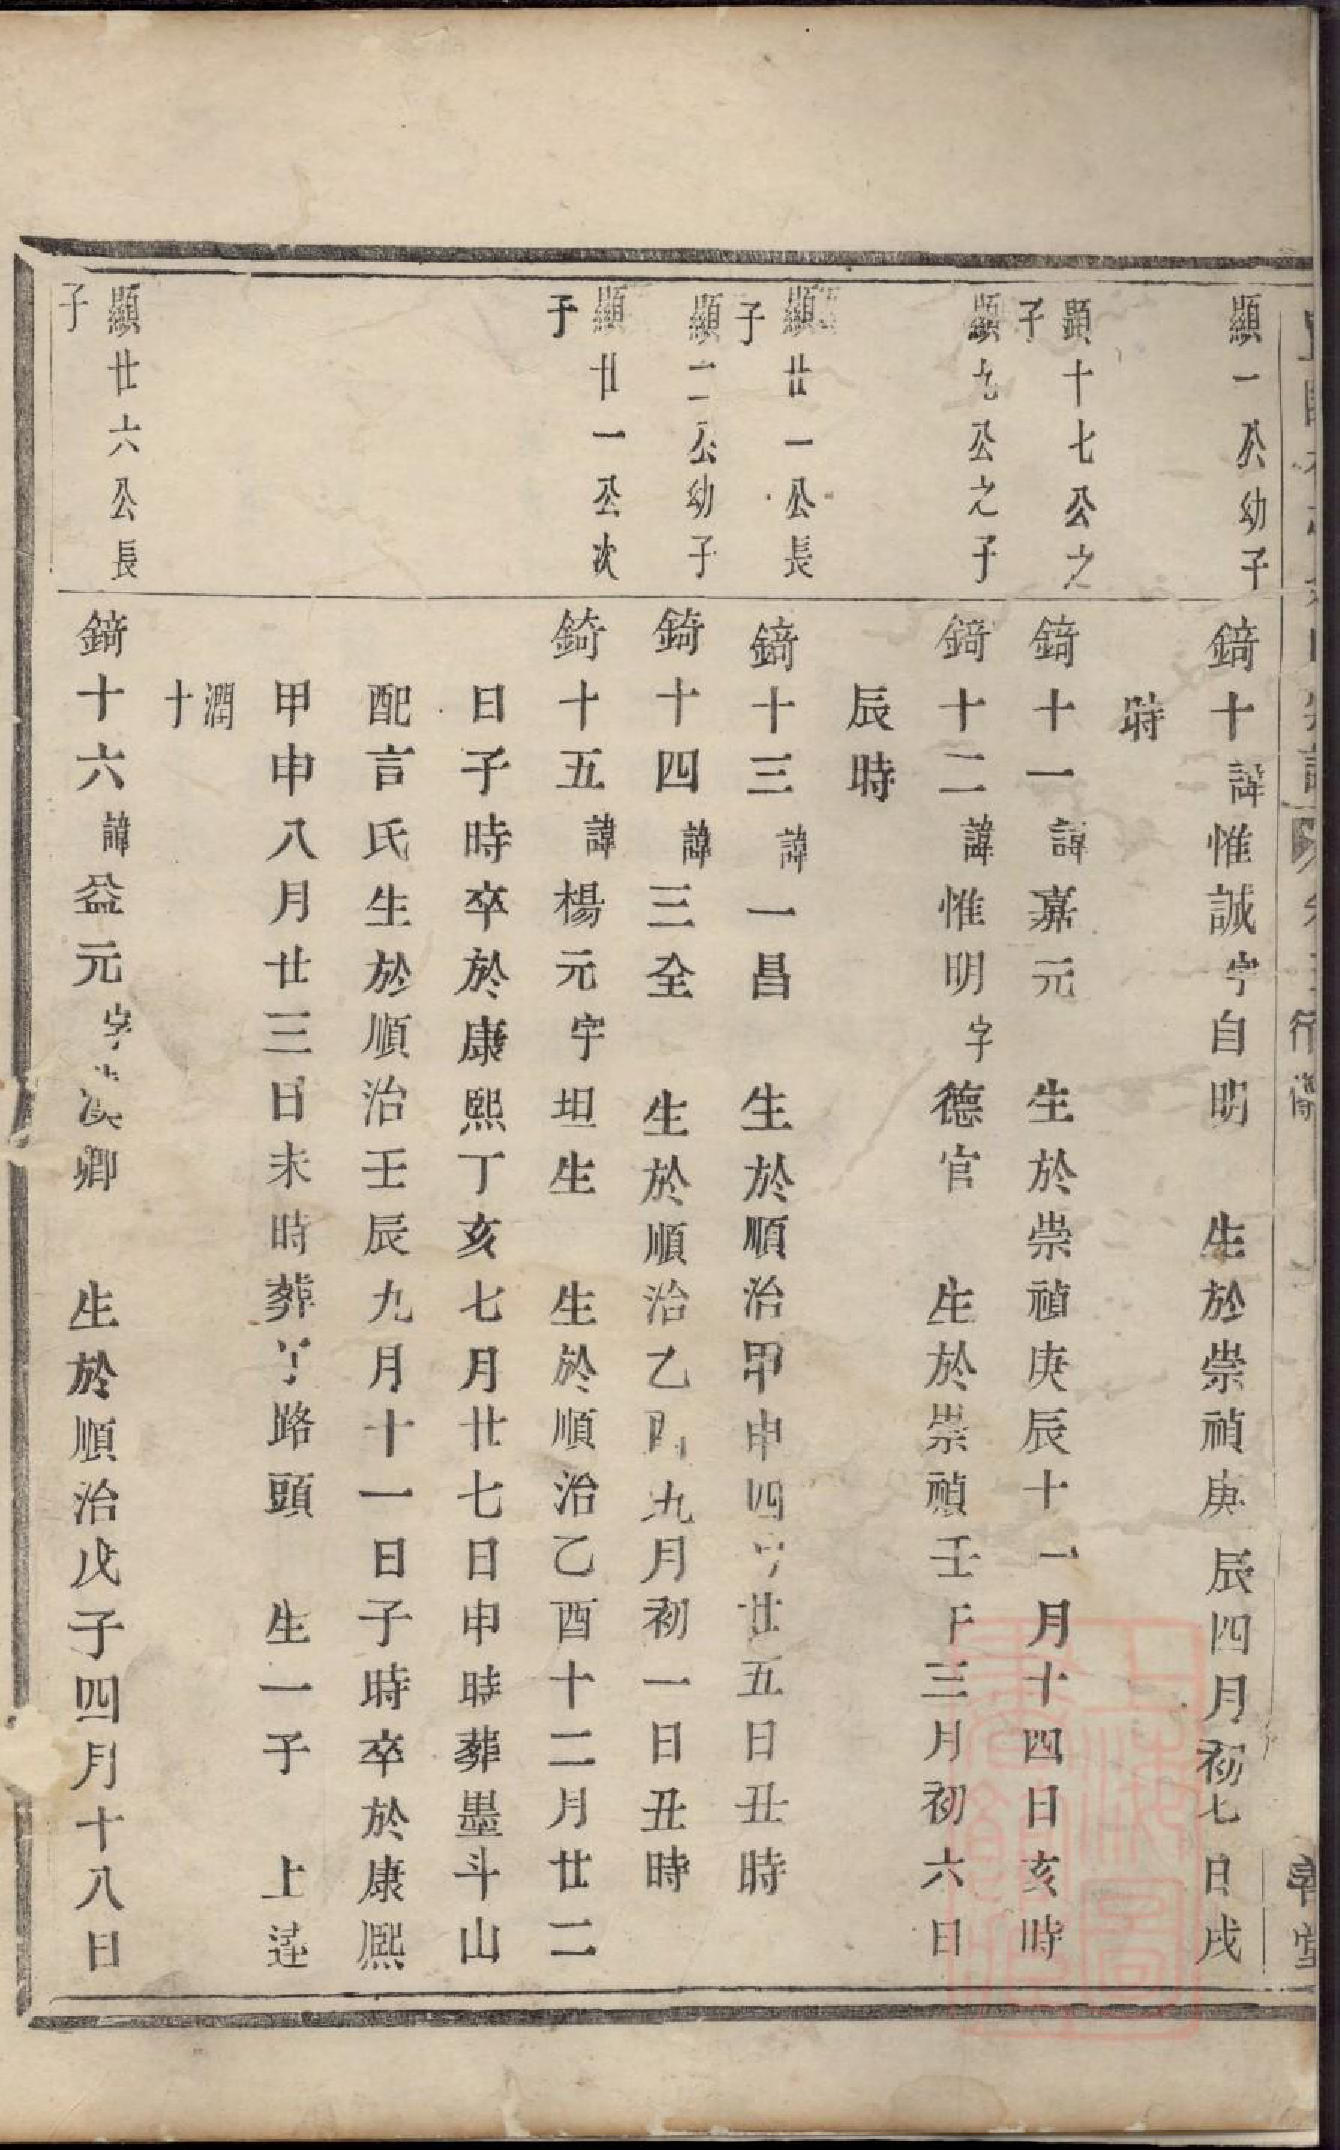 顯一公幼子
錡十諱惟誠字自明　生於崇禎庚辰四月初七日戌
時
顯十七公之
子
錡十一諱嘉元　生於崇禎庚辰十一月十四日亥時
顯九公之子
錡十二諱惟明字德官　生於崇禎壬午三月初六日
辰時
顯廿一公長
子
錡十三諱一昌　生於順治甲申四月廿五日丑時
顯二公幼子
錡十四諱三全　生於順治乙酉九月初一日丑時
顯廿一公次
子
錡十五諱楊元字坦生　生於順治乙酉十二月廿二
日子時卒於康熙丁亥七月廿七日申時葬墨斗山
配言氏生於順治壬辰九月十一日子時卒於康熙
甲申八月廿三日未時葬 路頭　生一子　上達
潤
十
顯廿六公長
子
錡十六諱益元字漢卿　生於順治戊子四月十八日